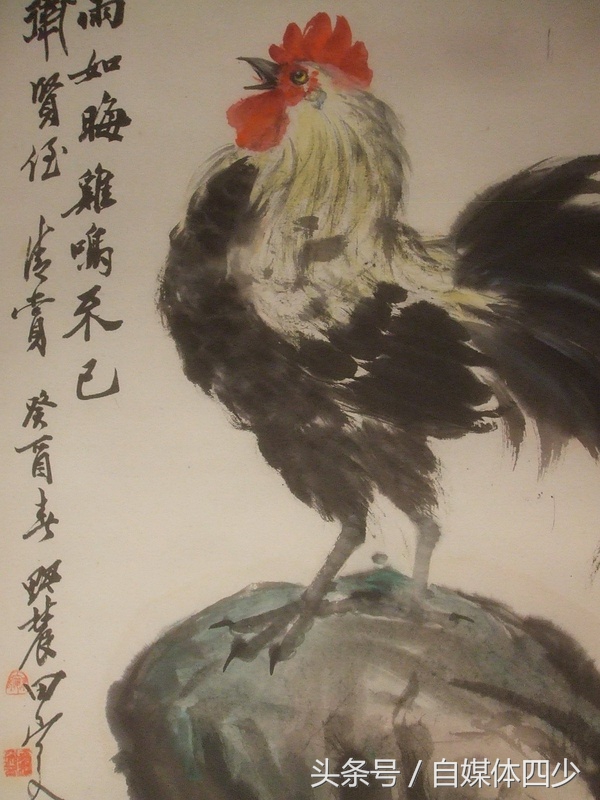 雨如晦雞鳴不已
賢侄 清賞 癸酉春 野農田
头条号 / 自媒体四少